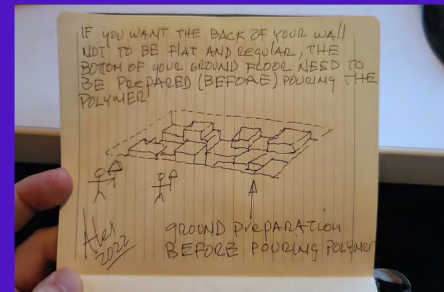 IF YOU WANT THE BACK OF YOUR WAll
NOT TO BE FlAT AND REgulAR, THE
BOTTOM OF YOUR GROUND FLOOR NEED TO
BE PREPARED (BEFORE) POURING THE
POLYMER
Alex
2022
gROUND PREPARATION
BEFORE POURING POLYMER